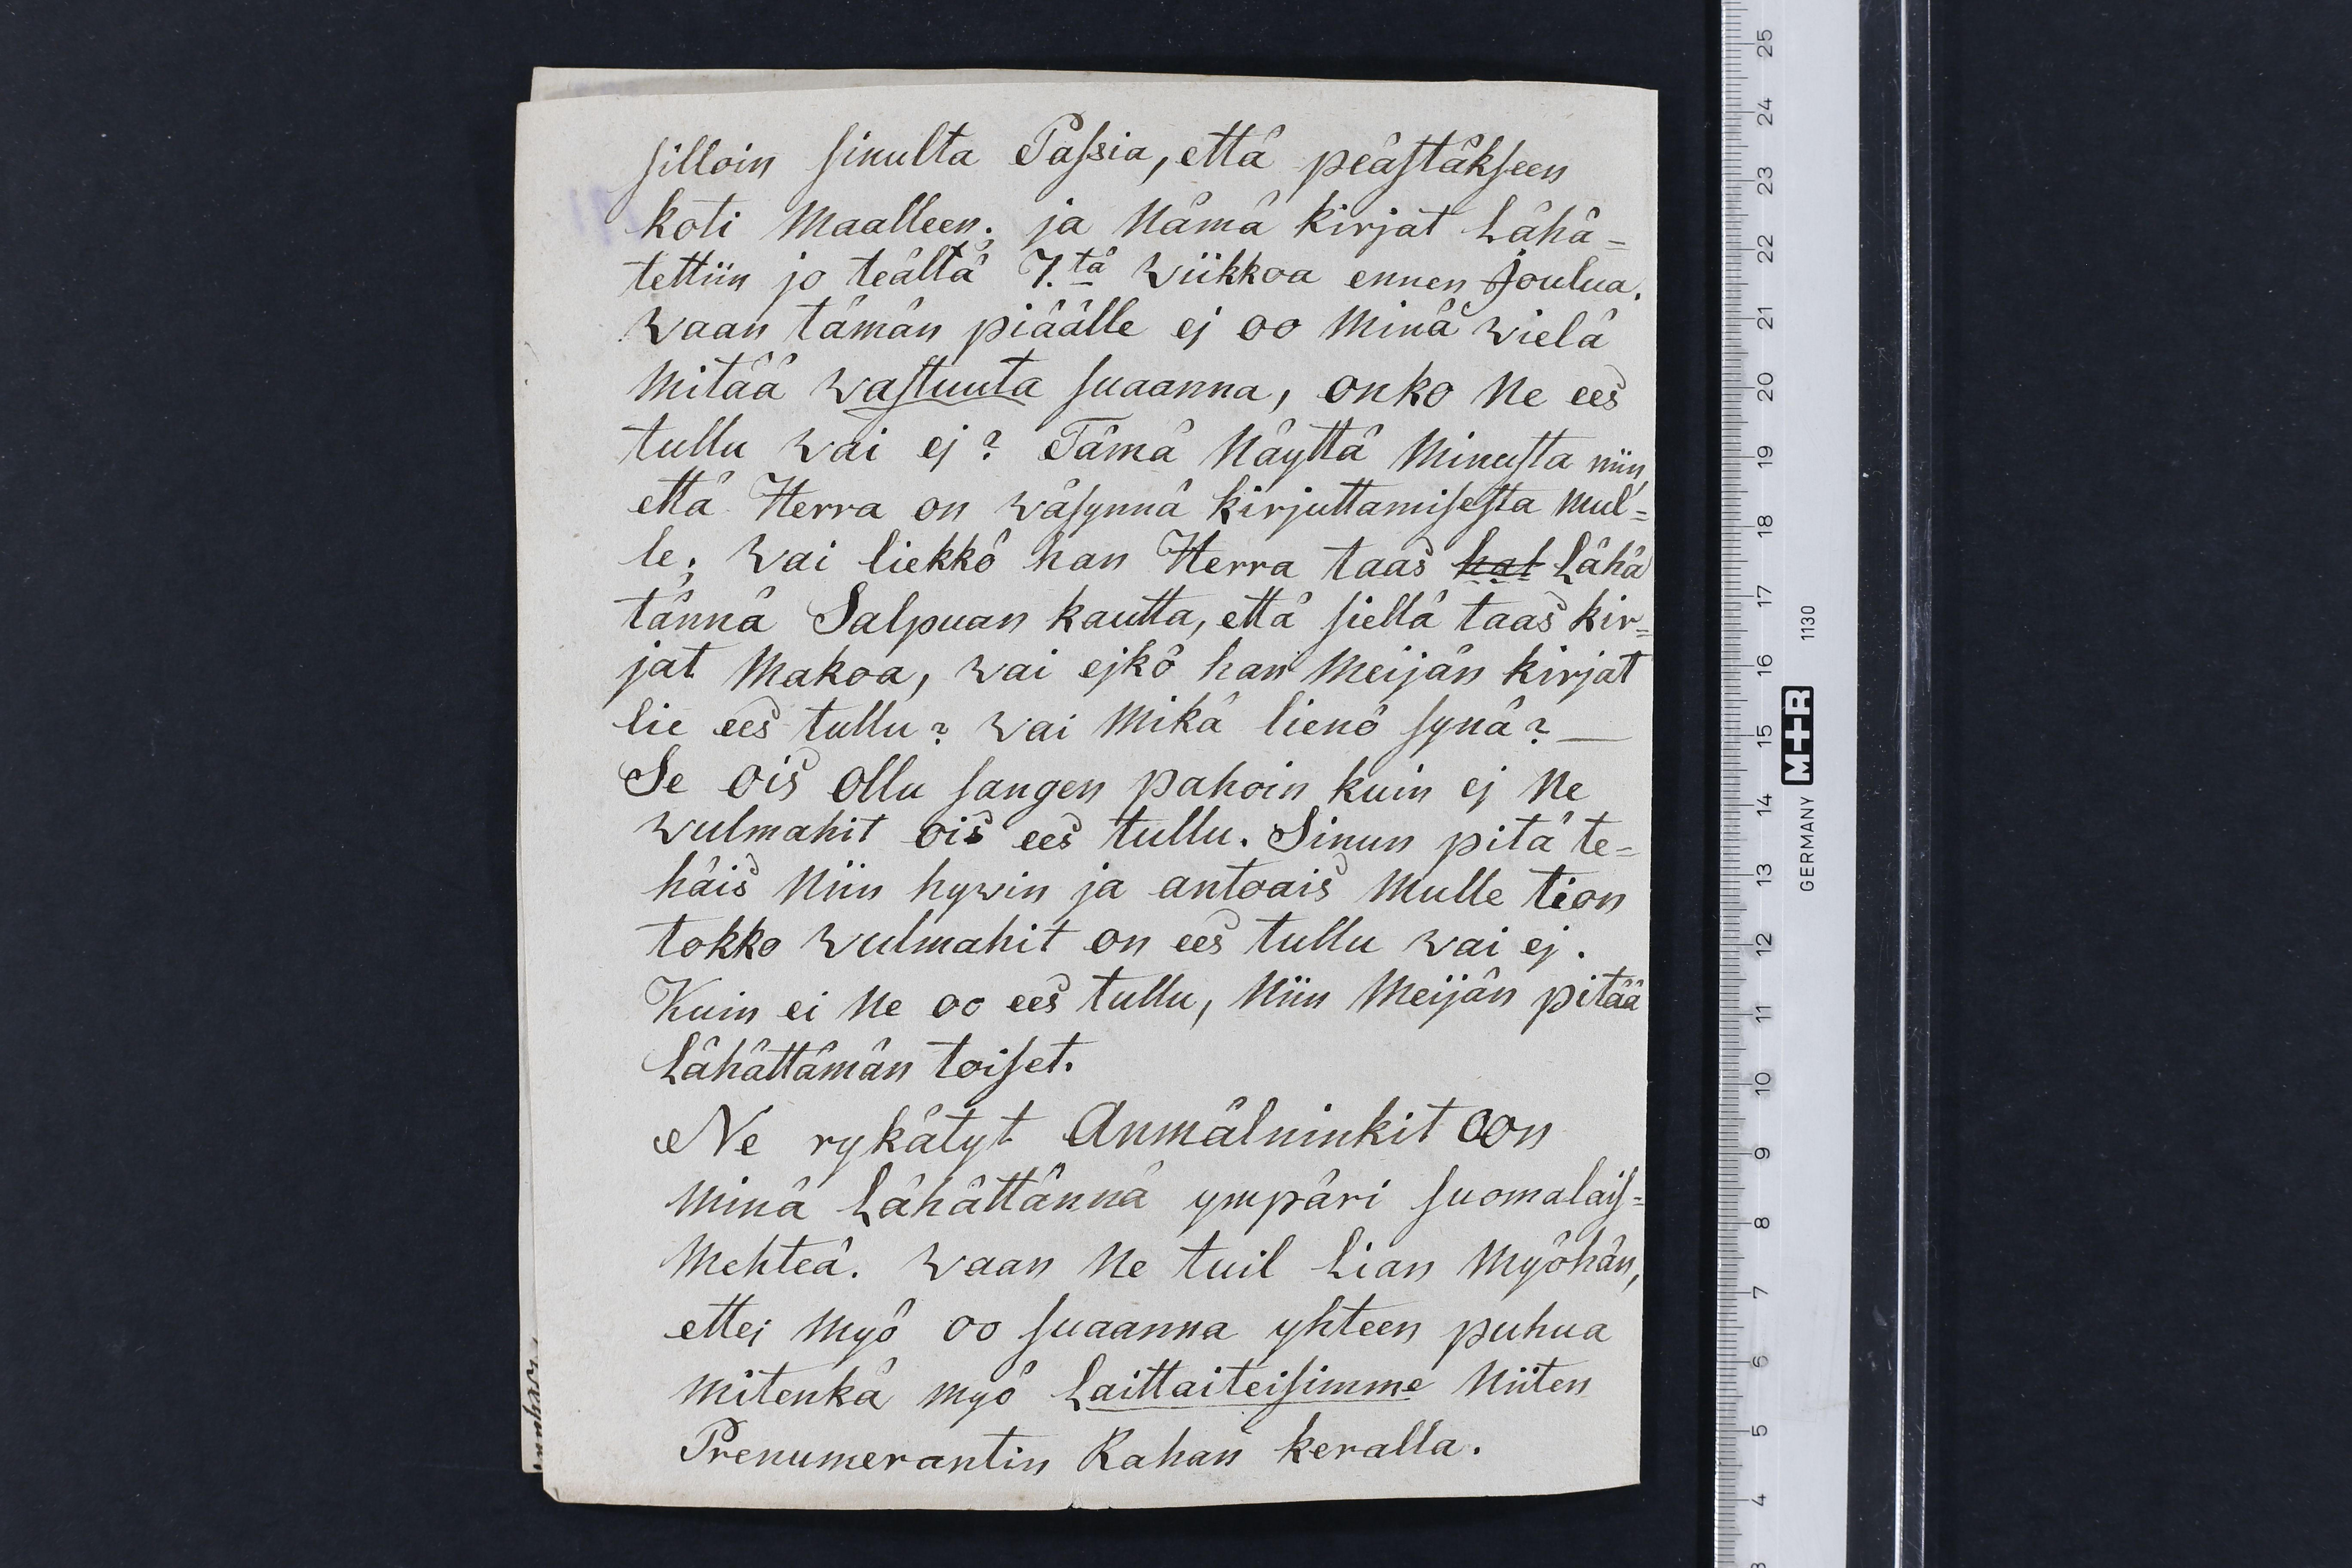 silloin sinulta Passia, että peästäkseen
koti Maalleen; ja Nämä kirjat Lähä=
tettiin jo teältä 7.tä wiikkoa ennen Joulua.
waan tämän piäälle ej oo Minä wielä
Mitää wastuuta suaanna, onko Ne ees
tullu wai ej? Tämä Näyttä Minusta niin,
että Herra on wäsynnä kirjuttamisesta Mul=
le; wai liekkö han Herra taas hat Lähä
tännä Salpuan kautta, että siellä taas kir=
jat Makoa, wai ejkö han Meijän kirjat
lie ees tullu? wai Mikä lienö synä? —
Se ois ollu sangen pahoin kuin ej Ne
wulmahit ois ees tullu. Sinun pitä te=
häis Niin hywin ja antoais Mulle tion
tokko wulmahit on ees tullu wai ej.
Kuin ei Ne oo ees tullu, Niin Meijän pitää
Lähättämän toiset.
Ne rykätyt Anmälninkit Oon
Minä Lähättännä ympäri suomalais=
Mehteä. waan Ne tuil Lian Myöhän,
ettej Myö oo suaanna yhteen puhua
Mitenkä Myö Laittaiteisimme Niiten
Prenumerantin Rahan keralla.
25
24
23
22
21
20
19
18
17
16
15
14
13
12
11
10
9
8
7
6
5
4
1130
M+R
GERMANY